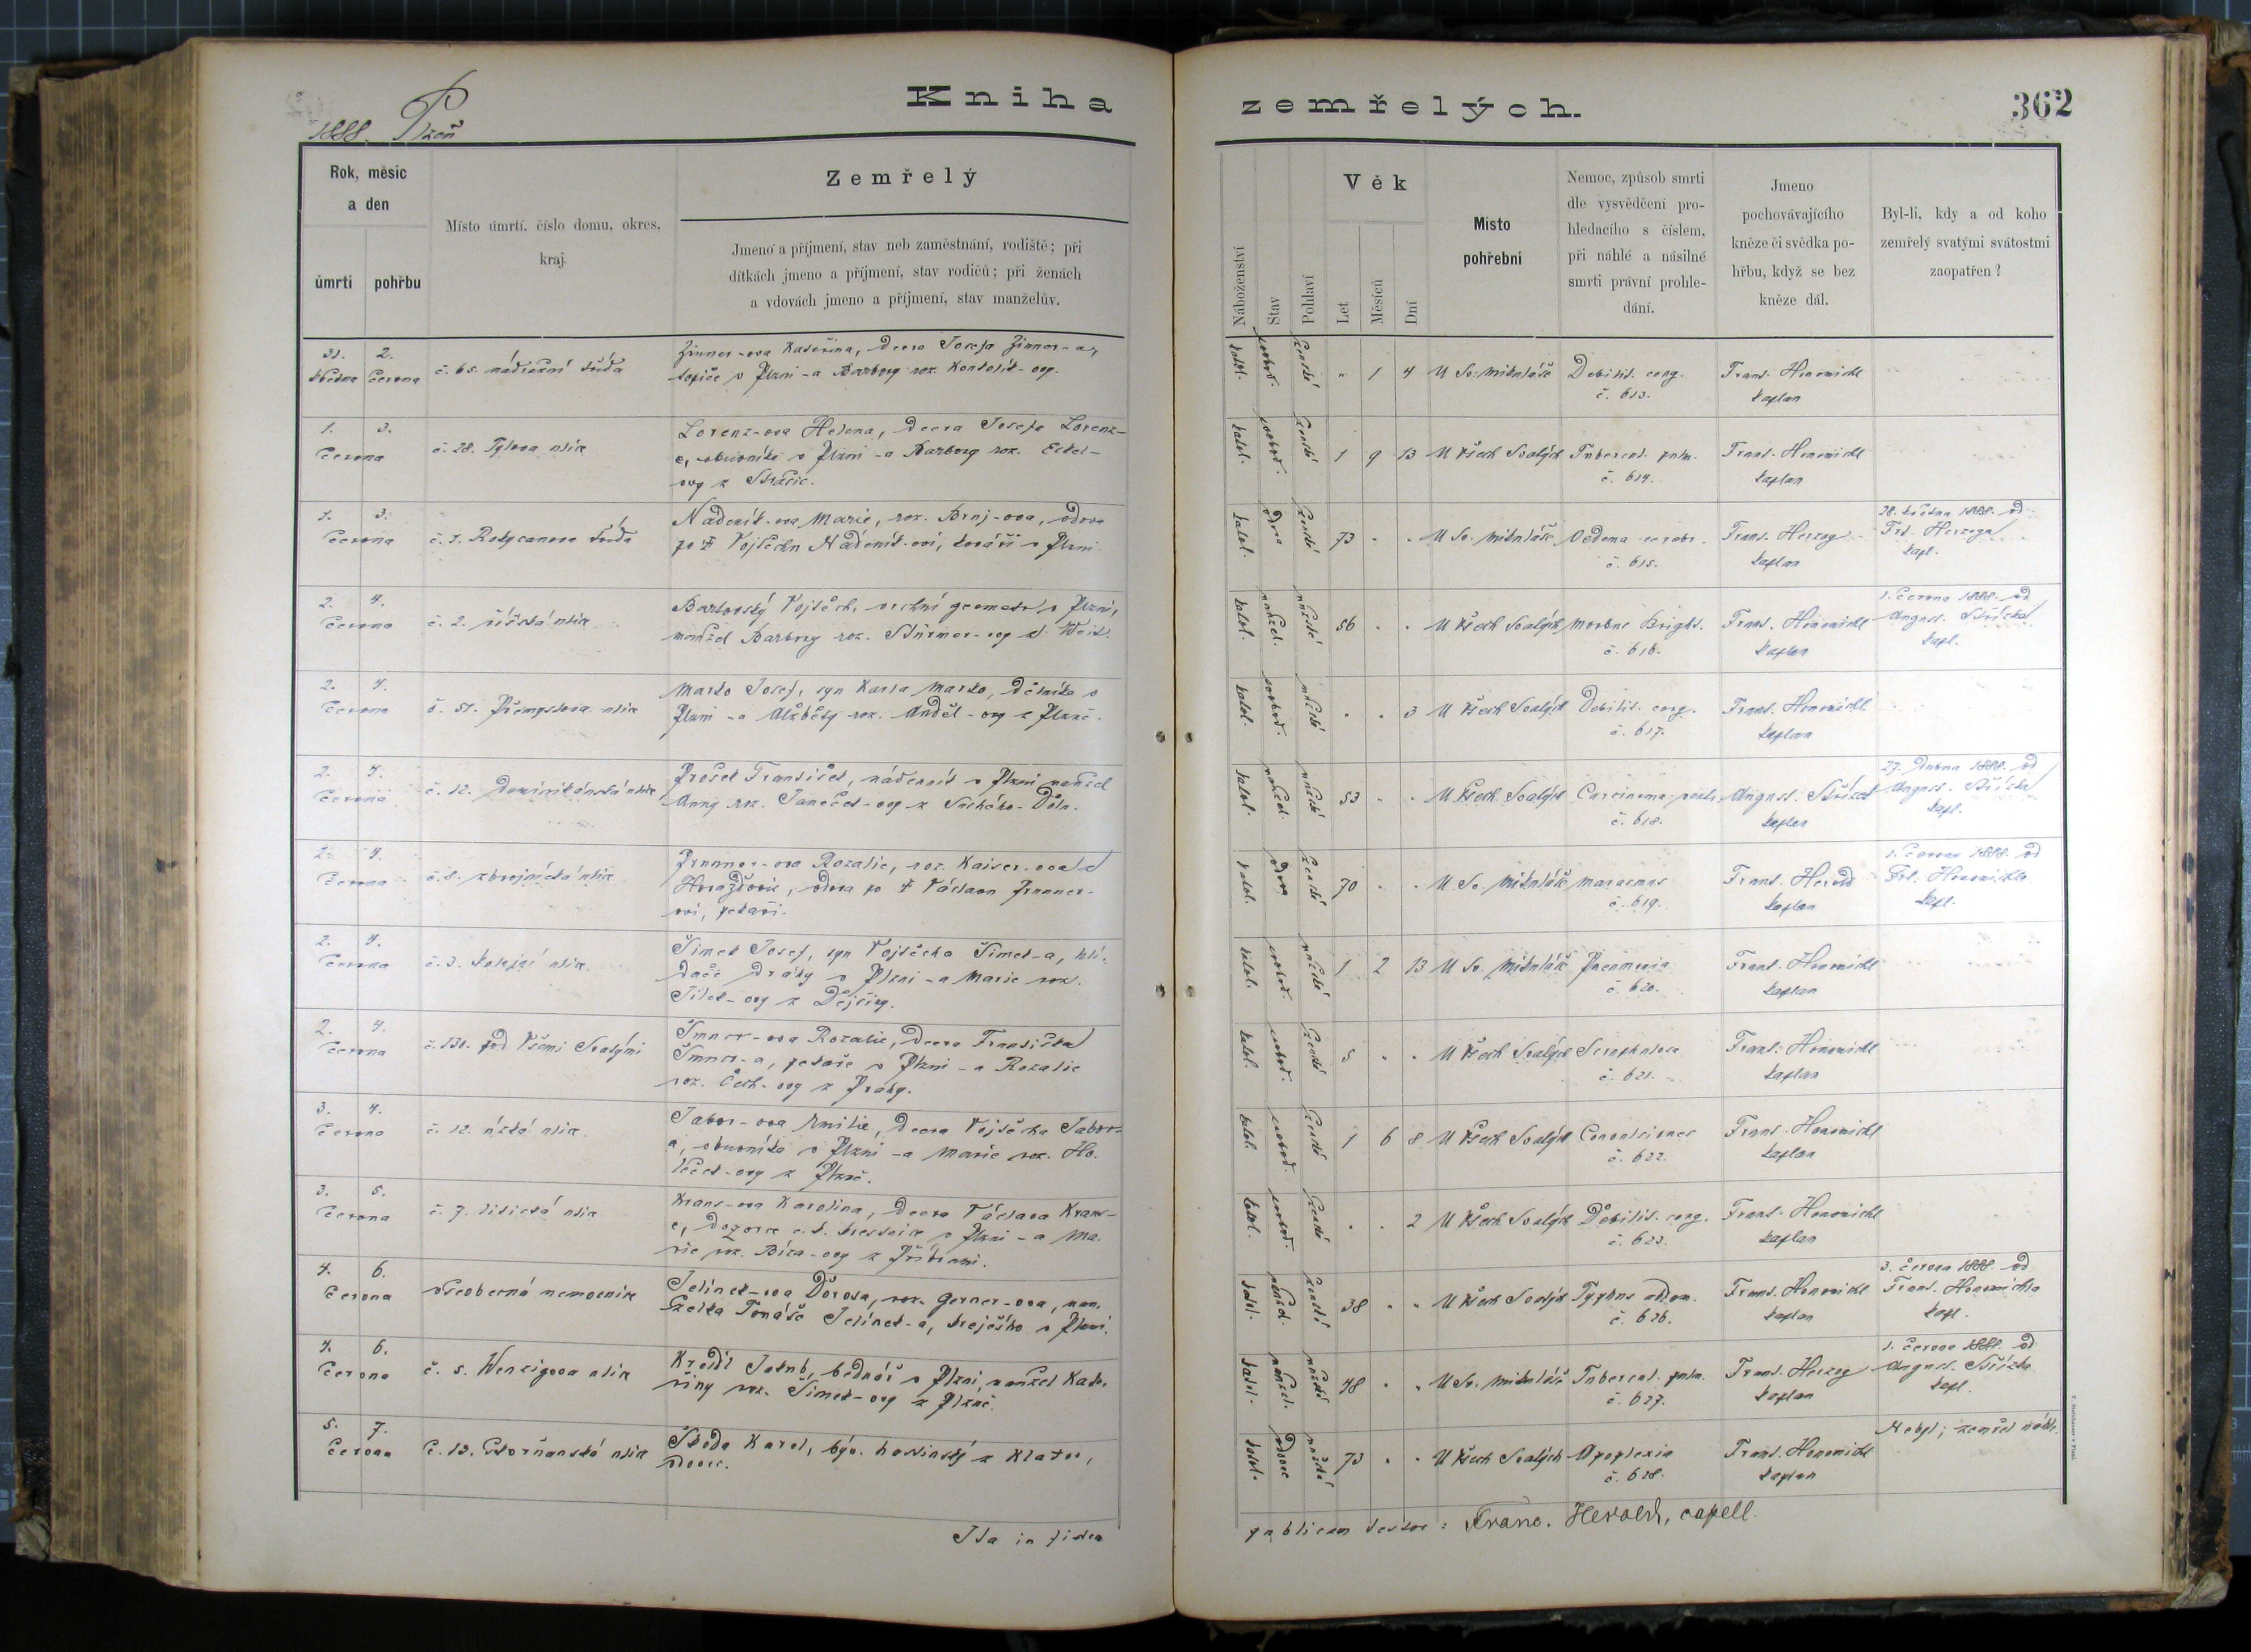 1888. Plzeň
Kniha
zemřelých.
362
Rok, měsíc
a den
úmrtí
pohřbu
Místo úmrtí, číslo domu, okres,
kraj.
Zemřelý
Jmeno a příjmení, stav neb zaměstnání, rodiště; při
dítkách jmeno a příjmení, stav rodičů; při ženách
a vdovách jmeno a příjmení, stav manželův.
Náboženství
Stav
Pohlaví
Věk
Let
Měsíců
Dní
Místo
pohřební
Nemoc, způsob smrti
dle vysvědčení pro-
hledacího s číslem,
při náhlé a násilné
smrti právní prohle-
dání.
Jmeno
pochovávajícího
kněze či svědka po-
hřbu, když se bez
kněze dál.
Byl-li, kdy a od koho
zemřelý svatými svátostmi
zaopatřen?
31. 2.
května června č. 65. nádražní třída
Zinner-ova Kateřina, dcera Josefa Zinner-a,
topiče v Plzni -a Barbory roz.
katol. svobod. ženské " 1 4 U Sv. Mikuláše Debilit. cong. Frant. Honomichl
č. 613. kaplan
1. 3.
června č. 28. Tylova ulice
Lorenz-ova Helena, dcera Josefa Lorenz-
e, obuvníka v Plzni -a Barbory roz. Eckel-
ovy z
katol. svobod. ženské 1 9 13 U Všech Svatých Tubercul. pulm. Frant. Honomichl
č. 614. kaplan
1. 3.
června č. 1. Rokycanova třída
Nádeník-ova Marie, roz. Brnj-ova, vdova
po † Vojtěchu Nádeník-ovi, kováři v Plzni.
katol. vdova ženské 73 " " U Sv. Mikuláše Oedema cerebr. Frant. Herzog
č. 615. kaplan
28. května 1888. od
Frt. Herzoga
kapl.
2. 4.
června č. 2. říčská ulice
Bartovský Vojtěch, vrchní geometr v Plzni,
manžel Barbory roz. Stürmer-ovy
katol. manžel. mužské 56 " " U Všech Svatých Morbus Bright. Frant. Honomichl
č. 616. kaplan
1. června 1888. od
August. Střízka
kapl.
2. 4.
června č. 51. Přemyslova ulice
Marko Josef, syn Karla Marko, dělníka v
Plzni -a Alžběty roz. Anděl-ovy z Plzně.
katol. svobod. mužské " " 3 U Všech Svatých Debilit. cong. Frant. Honomichl
č. 617. kaplan
2. 4.
června č. 12. Dominikánská ulice
Prošek František, nádeník v Plzni manžel
Anny roz. Janeček-ovy z
katol. manžel. mužské 53 " " U Všech Svatých Carcinoma August. Střízek
č. 618. kaplan
27. dubna 1888. od
August. Střízka
kapl.
2. 4.
června č. 8. zbrojnická ulice
Prunner-ova Rozalie, roz. Kaiser-ova z
Horažďovic, vdova po † Václavu Prunner-
ovi, pekaři.
katol. vdova ženské 70 " " U Sv. Mikuláše Marasmus Frant. Herold
č. 619. kaplan
1. června 1888. od
Frt. Honomichla
kapl.
2. 4.
června č. 3. kolejní ulice
Šimek Josef, syn Vojtěcha Šimek-a, hlí-
dače dráhy v Plzni -a Marie roz.
Jílek-ovy z Dejšiny.
katol. svobod. mužské 1 2 13 U Sv. Mikuláše Pneumonia Frant. Honomichl
č. 620. kaplan
2. 4.
června č. 130. pod Všemi Svatými
Šmucr-ova Rozalie, dcera Františka
Šmucr-a, pekaře v Plzni -a Rozalie
roz. Čech-ovy z Prahy.
katol. svobod. ženské 5 " " U Všech Svatých Scrophulosa Frant. Honomichl
č. 621. kaplan
3. 4.
června č. 12. úzká ulice
Tabor-ova Emilie, dcera Vojtěcha Tabor-
a, obuvníka v Plzni -a Marie roz. Ho-
leček-ovy z Plzně.
katol. svobod. ženské 1 6 8 U Všech Svatých Convulsiones Frant. Honomichl
č. 622. kaplan
3. 5.
června č. 7. litická ulice
Kraus-ova Karolina, dcera Václava Kraus-
e, dozorce c. k. trestnice v Plzni -a Ma-
rie roz. Bíza-ovy z Příbrami.
katol. svobod. ženské " " 2 U Všech Svatých Debilit. cong. Frant. Honomichl
č. 623. kaplan
4. 6.
června všeobecná nemocnice
Jelínek-ova Dorota, roz. Gerner-ova, man-
želka Tomáše Jelínek-a, krejčího v Plzni.
katol. manžel. ženské 38 " " U Všech Svatých Typhus abdom. Frant. Honomichl
č. 626. kaplan
3. června 1888. od
Frant. Honomichla
kapl.
4. 6.
června č. 5. Wenzigova ulice
Kreidl Jakub, bednář v Plzni, manžel Kate-
řiny roz. Šimek-ovy z Plzně.
katol. manžel. mužské 48 " " U Sv. Mikuláše Tubercul. pulm. Frant. Herzog
č. 627. kaplan
1. června 1888. od
August. Střízka
kapl.
5. 7.
června č. 13. Ostrčanská ulice
Škoda Karel, býv. hostinský z Klatov,
vdovec.
katol. vdovec mužské 73 " " U Všech Svatých Apoplexia Frant. Honomichl
č. 628. kaplan
Nebyl; zemřel náhle.
Ita in fidem
publicam testor: Franc. Herold, capell.